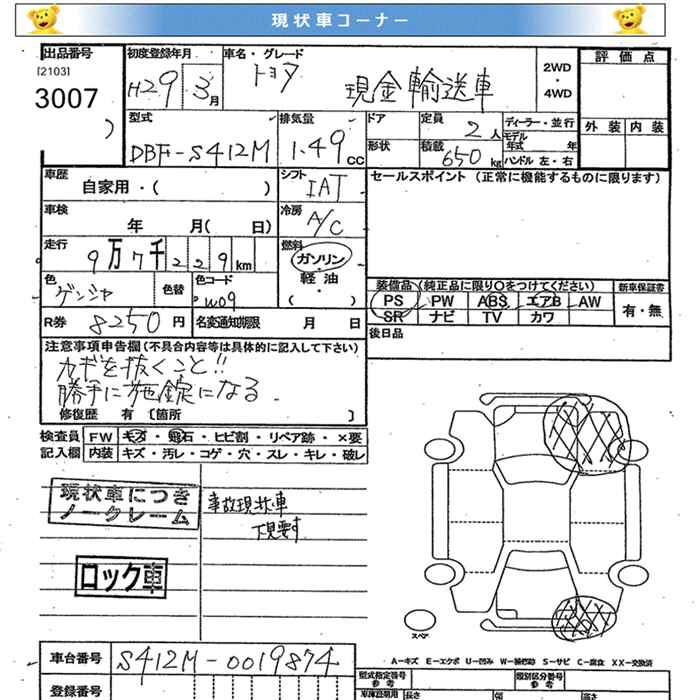 現状車コーナー
出品番号
[2103]
3007
初度登録年月
H29 3月
車名・グレード
トヨタ
現金輸送車
2WD
・
4WD
評価点
外装 内装
型式
DBF-S412M
排気量
1.49 CC
ドア
形状
定員
2人
積載
650 kg
ディーラー・並行
モデル
年式 年
ハンドル 左・右
車歴
自家用・( )
シフト
IAT
セールスポイント (正常に機能するものに限ります)
車検
年 月( 日)
冷房
A/C
走行
9万7千229km
燃料
ガソリン・
軽油・
( )
色
ゲンシャ
色替
色コード
W09
装備品 (純正品に限り○をつけてください)
新車保証書
PS PW ABS エアB AW
SR ナビ TV カワ
有・無
R券 8250円
名変通知期限 月 日
後日品
注意事項申告欄(不具合内容等は具体的に記入して下さい)
カギを抜くこと!!
勝手に施錠になる
修復歴 有 [箇所 ]
検査員
記入欄
FW キズ・飛石・ヒビ割・リペア跡・×要
内装 キズ・汚レ・コゲ・穴・スレ・キレ・破レ
現状車につき
ノークレーム
事故現状車
下見要す
ロック車
スペア
A-キズ E-エクボ U-凹み W-補修跡 S-サビ C-腐食 XX-交換済
車台番号
S412M-0019874
登録番号
型式指定番号
参考
類別区分番号
参考
長さ
幅
高さ